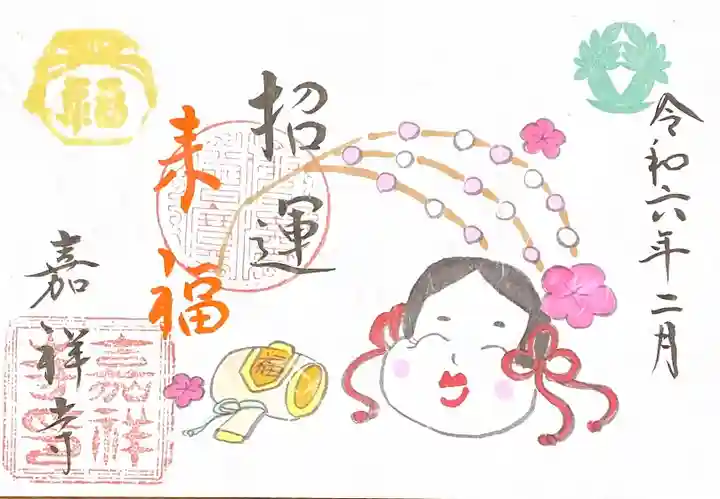 令和六年二月
招運
来福
嘉祥寺
福
福
嘉祥